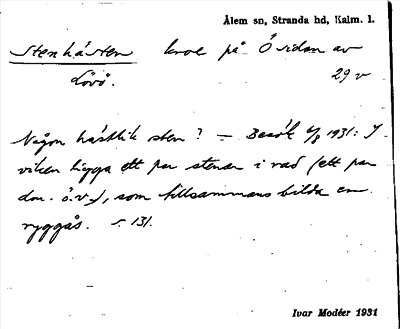 Ålem sn, Stranda hd, Kalm. l.
Stenhästen kroe på Ö sidan av
Lövö. 29 v
Någon hästlik sten? — Besök 6/8 1931: I
viken ligga ett par stenar i rad (ett par
dm. ö.v.y), som tillsammans bilda en
ryggås. s. 131.
Ivar Modéer 1931